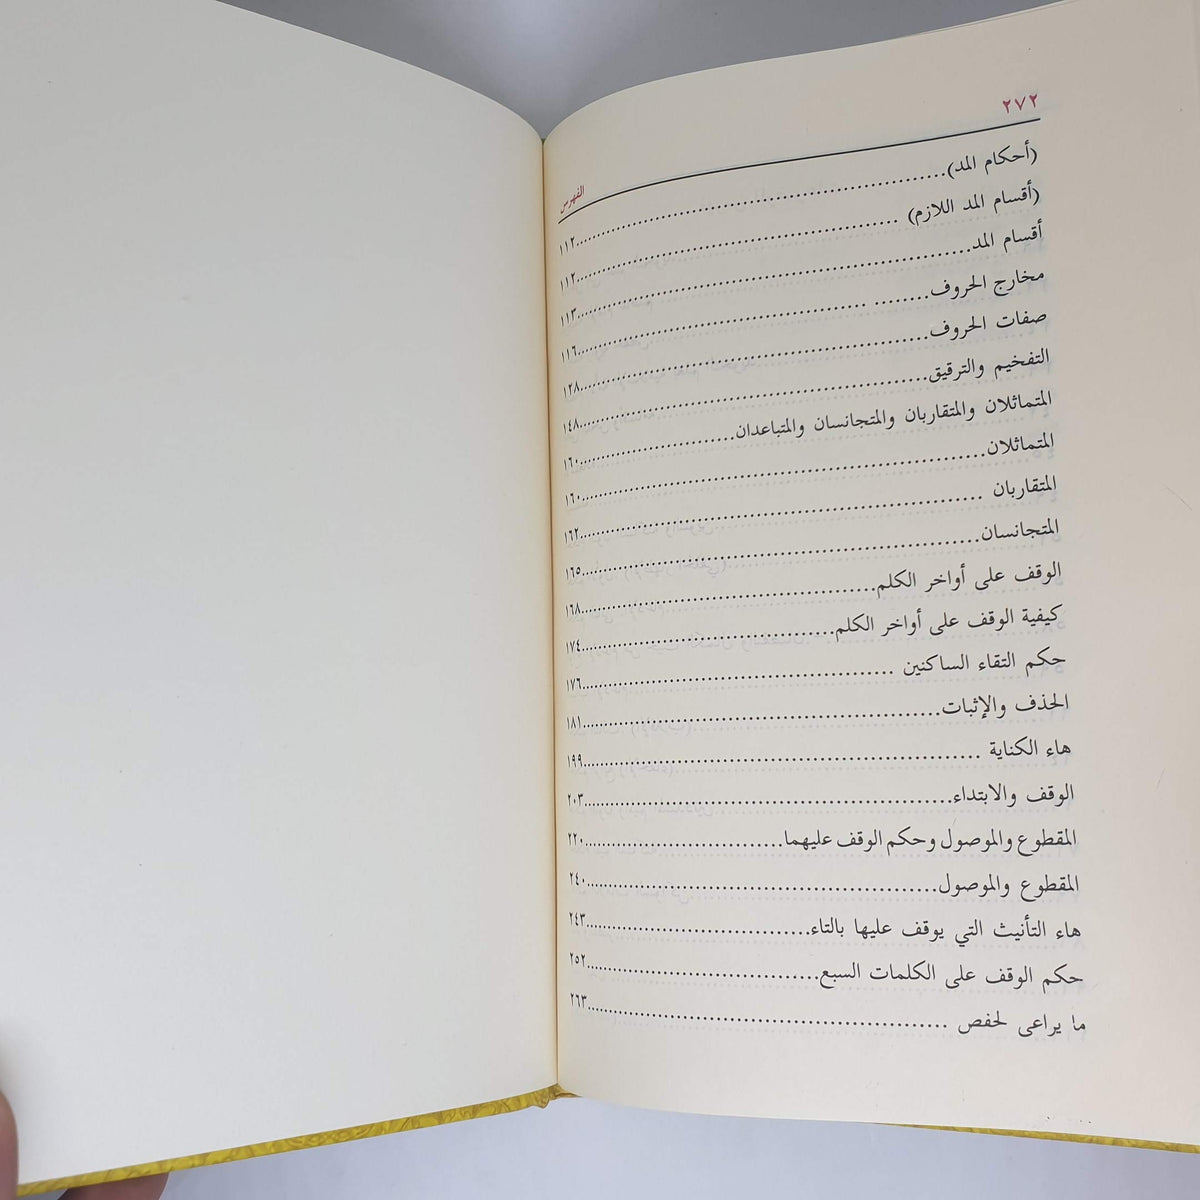 ٢٧٢
الفهرس
(أحكام المد)................١١٢
(أقسام المد اللازم) ................١١٢
أقسام المد................١١٣
مخارج الحروف................١١٦
صفات الحروف................١٢٨
التفخيم والترقيق................١٤٨
المتماثلان والمتقاربان والمتجانسان والمتباعدان................١٦٠
المتماثلان................١٦٠
المتقاربان ................١٦٢
المتجانسان................١٦٥
الوقف على أواخر الكلم................١٦٨
كيفية الوقف على أواخر الكلم................١٧٤
حكم التقاء الساكنين ................١٧٦
الحذف والإثبات................١٨١
هاء الكناية ................١٩٩
الوقف والابتداء................٢٠٣
المقطوع والموصول وحكم الوقف عليهما................٢٢٠
المقطوع والموصول................٢٤٠
هاء التأنيث التي يوقف عليها بالتاء................٢٤٣
حكم الوقف على الكلمات السبع................٢٥٢
ما يراعى لحفص ................٢٦٣